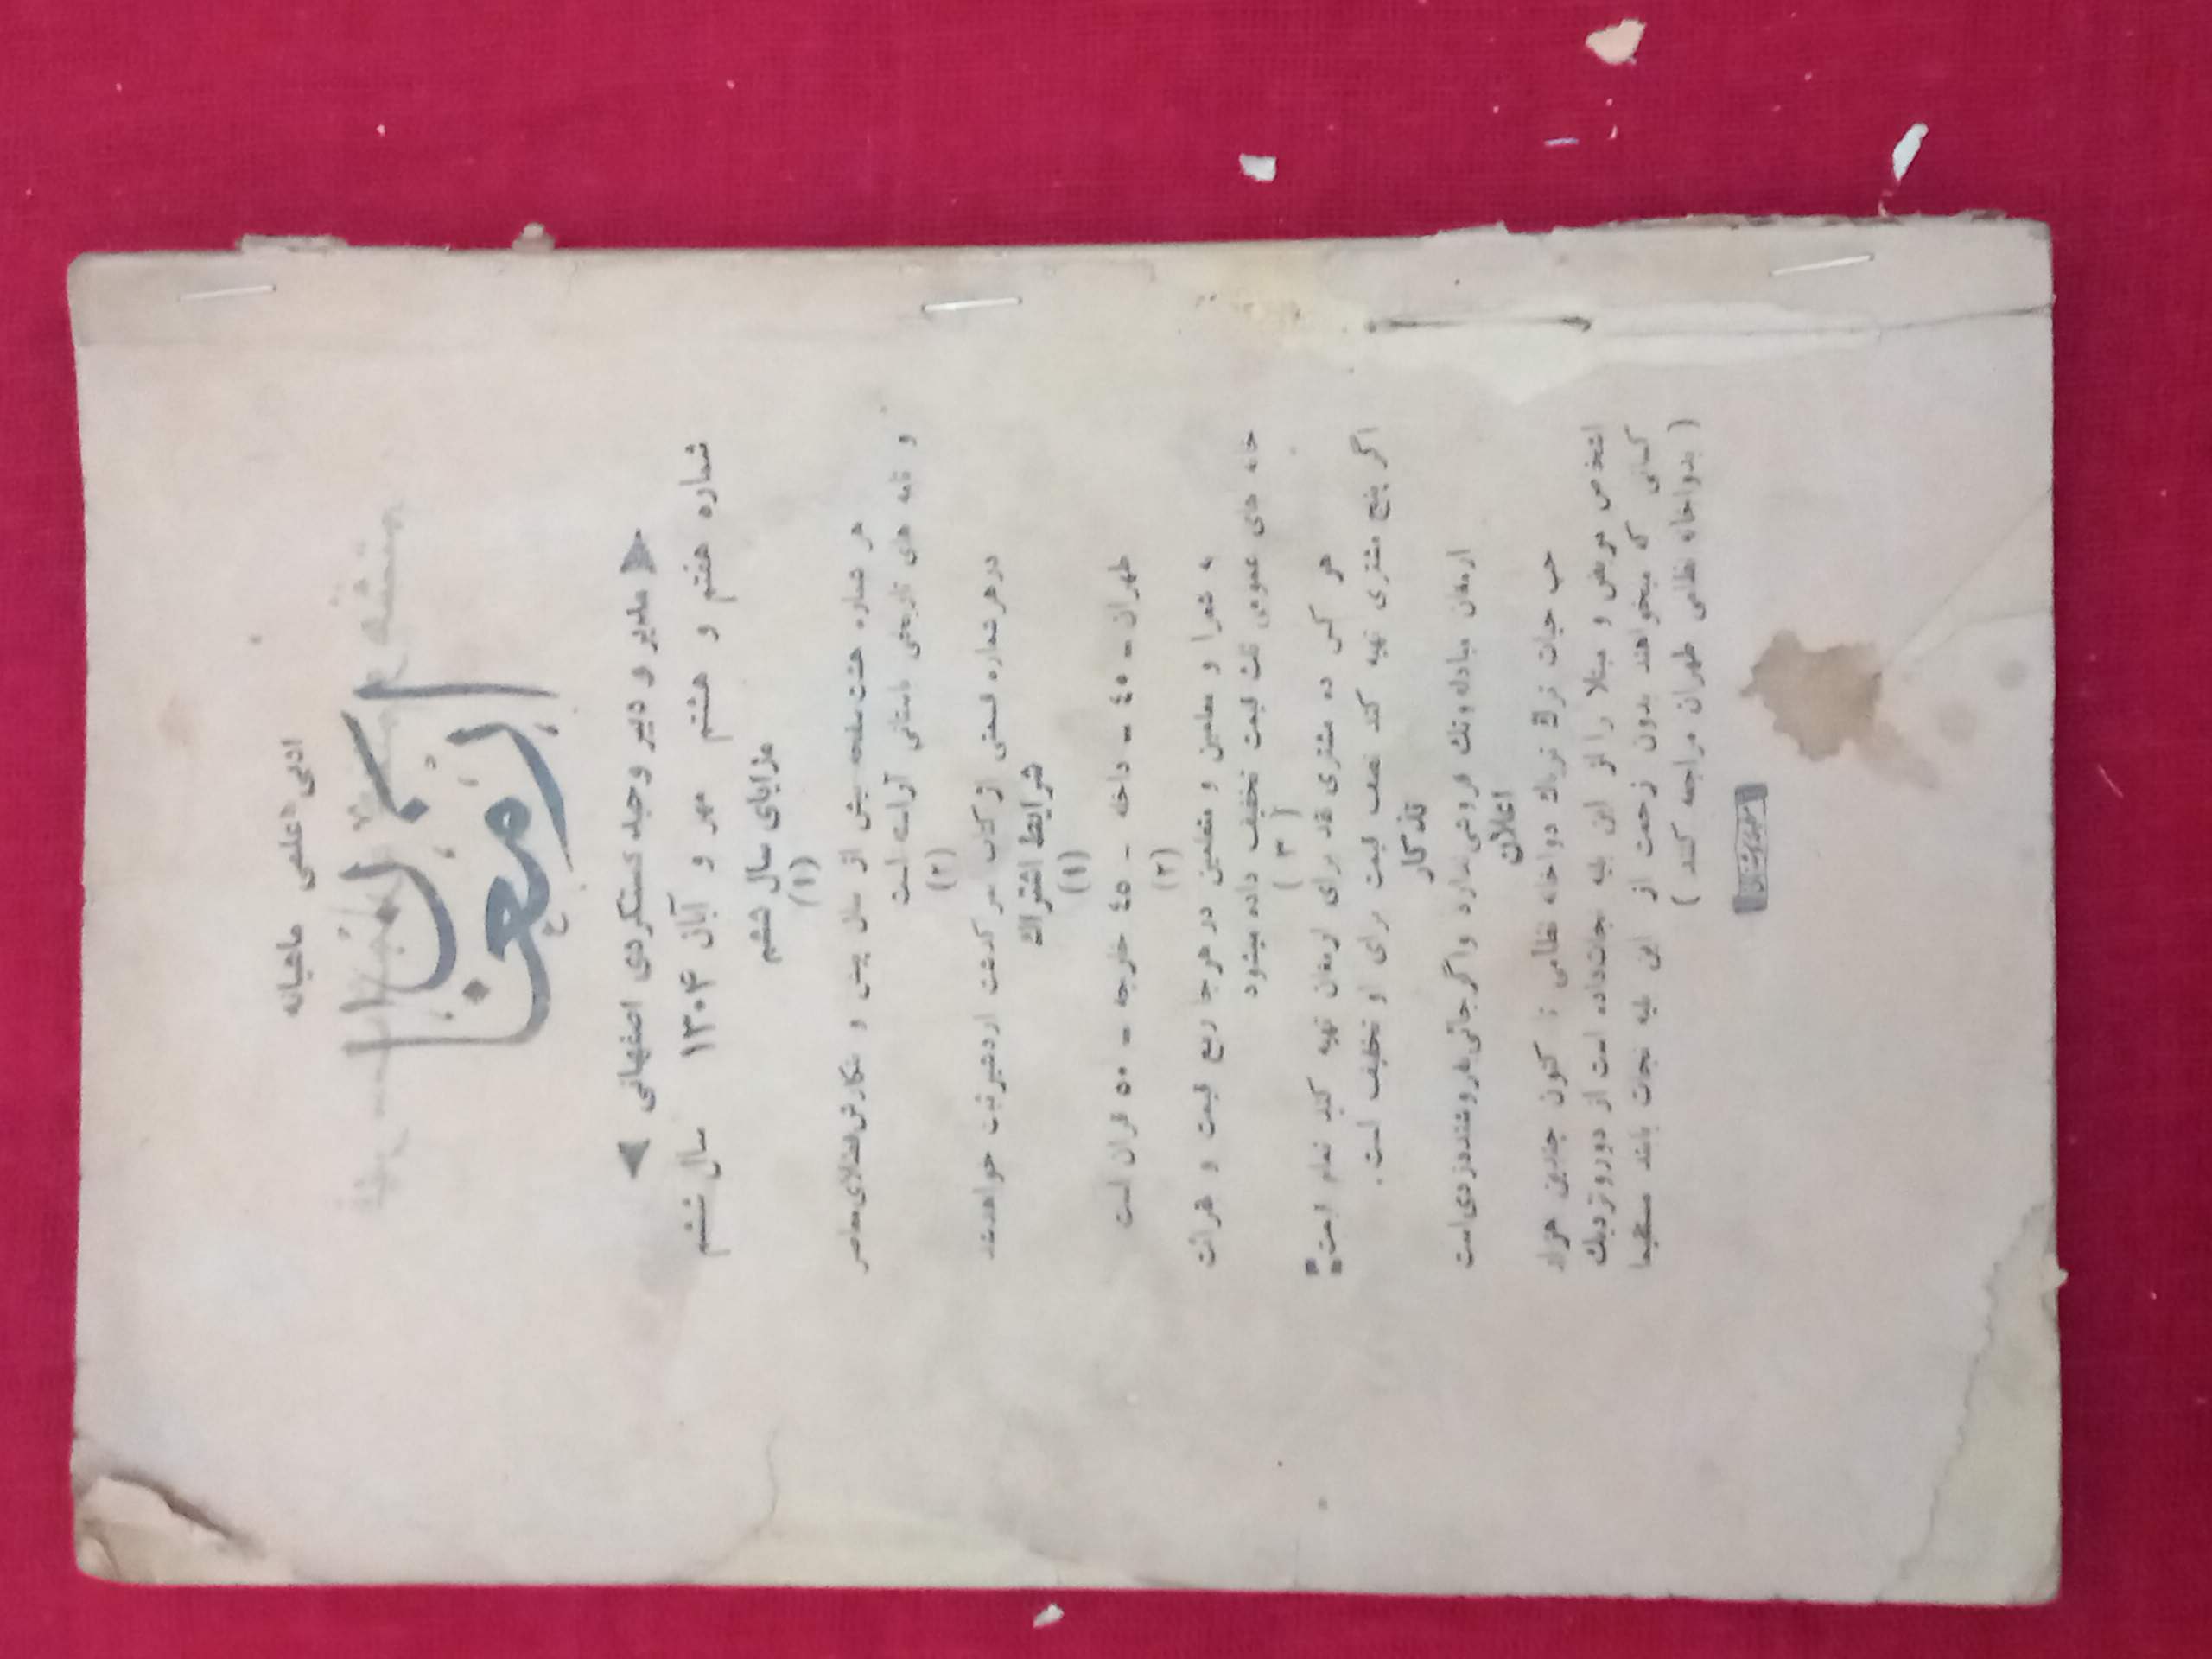 ادبی علمی ماهیانه
ارمغان
مدیر و دبیر وحید دستگردی اصفهانی
شماره هفتم و هشتم مهر و آبان ۱۳۰۴ سال ششم
مزایای سال ششم
(۱)
هر شماره هشت صفحه بیش از سال پیش و نگارش فضلای معاصر
و نامه های تاریخی باستانی آراسته است
(۲)
در هر شماره قسمتی از کتاب سرگذشت اردشیر ثبت خواهد شد
شرایط اشتراك
(۱)
طهران - ٤٥ - داخله - ٤٥ خارجه - ٥٠ قران است
(۲)
به شعرا و معلمین و متعلمین در هر جا ربع قیمت و قرائت
خانه های عمومی ثلث قیمت تخفیف داده میشود
(۳)
هر کس ده مشتری نقد برای ارمغان تهیه کند تمام قیمت
اگر پنج مشتری تهیه کند نصف قیمت برای او تخفیف است.
تذکار
ارمغان مبادله و تك فروشی ندارد و اگر جائی بفروشند دزدی است
اعلان
حب حیات ترك تریاك دواخانه نظامی تا کنون چندین هزار
اشخاص مریض و مبتلا را از این بلیه نجات داده است از دور و نزدیك
کسانی که میخواهند بدون زحمت از این بلیه نجات یابند مستقیما
(بدواخانه نظامی طهران مراجعه کنند)